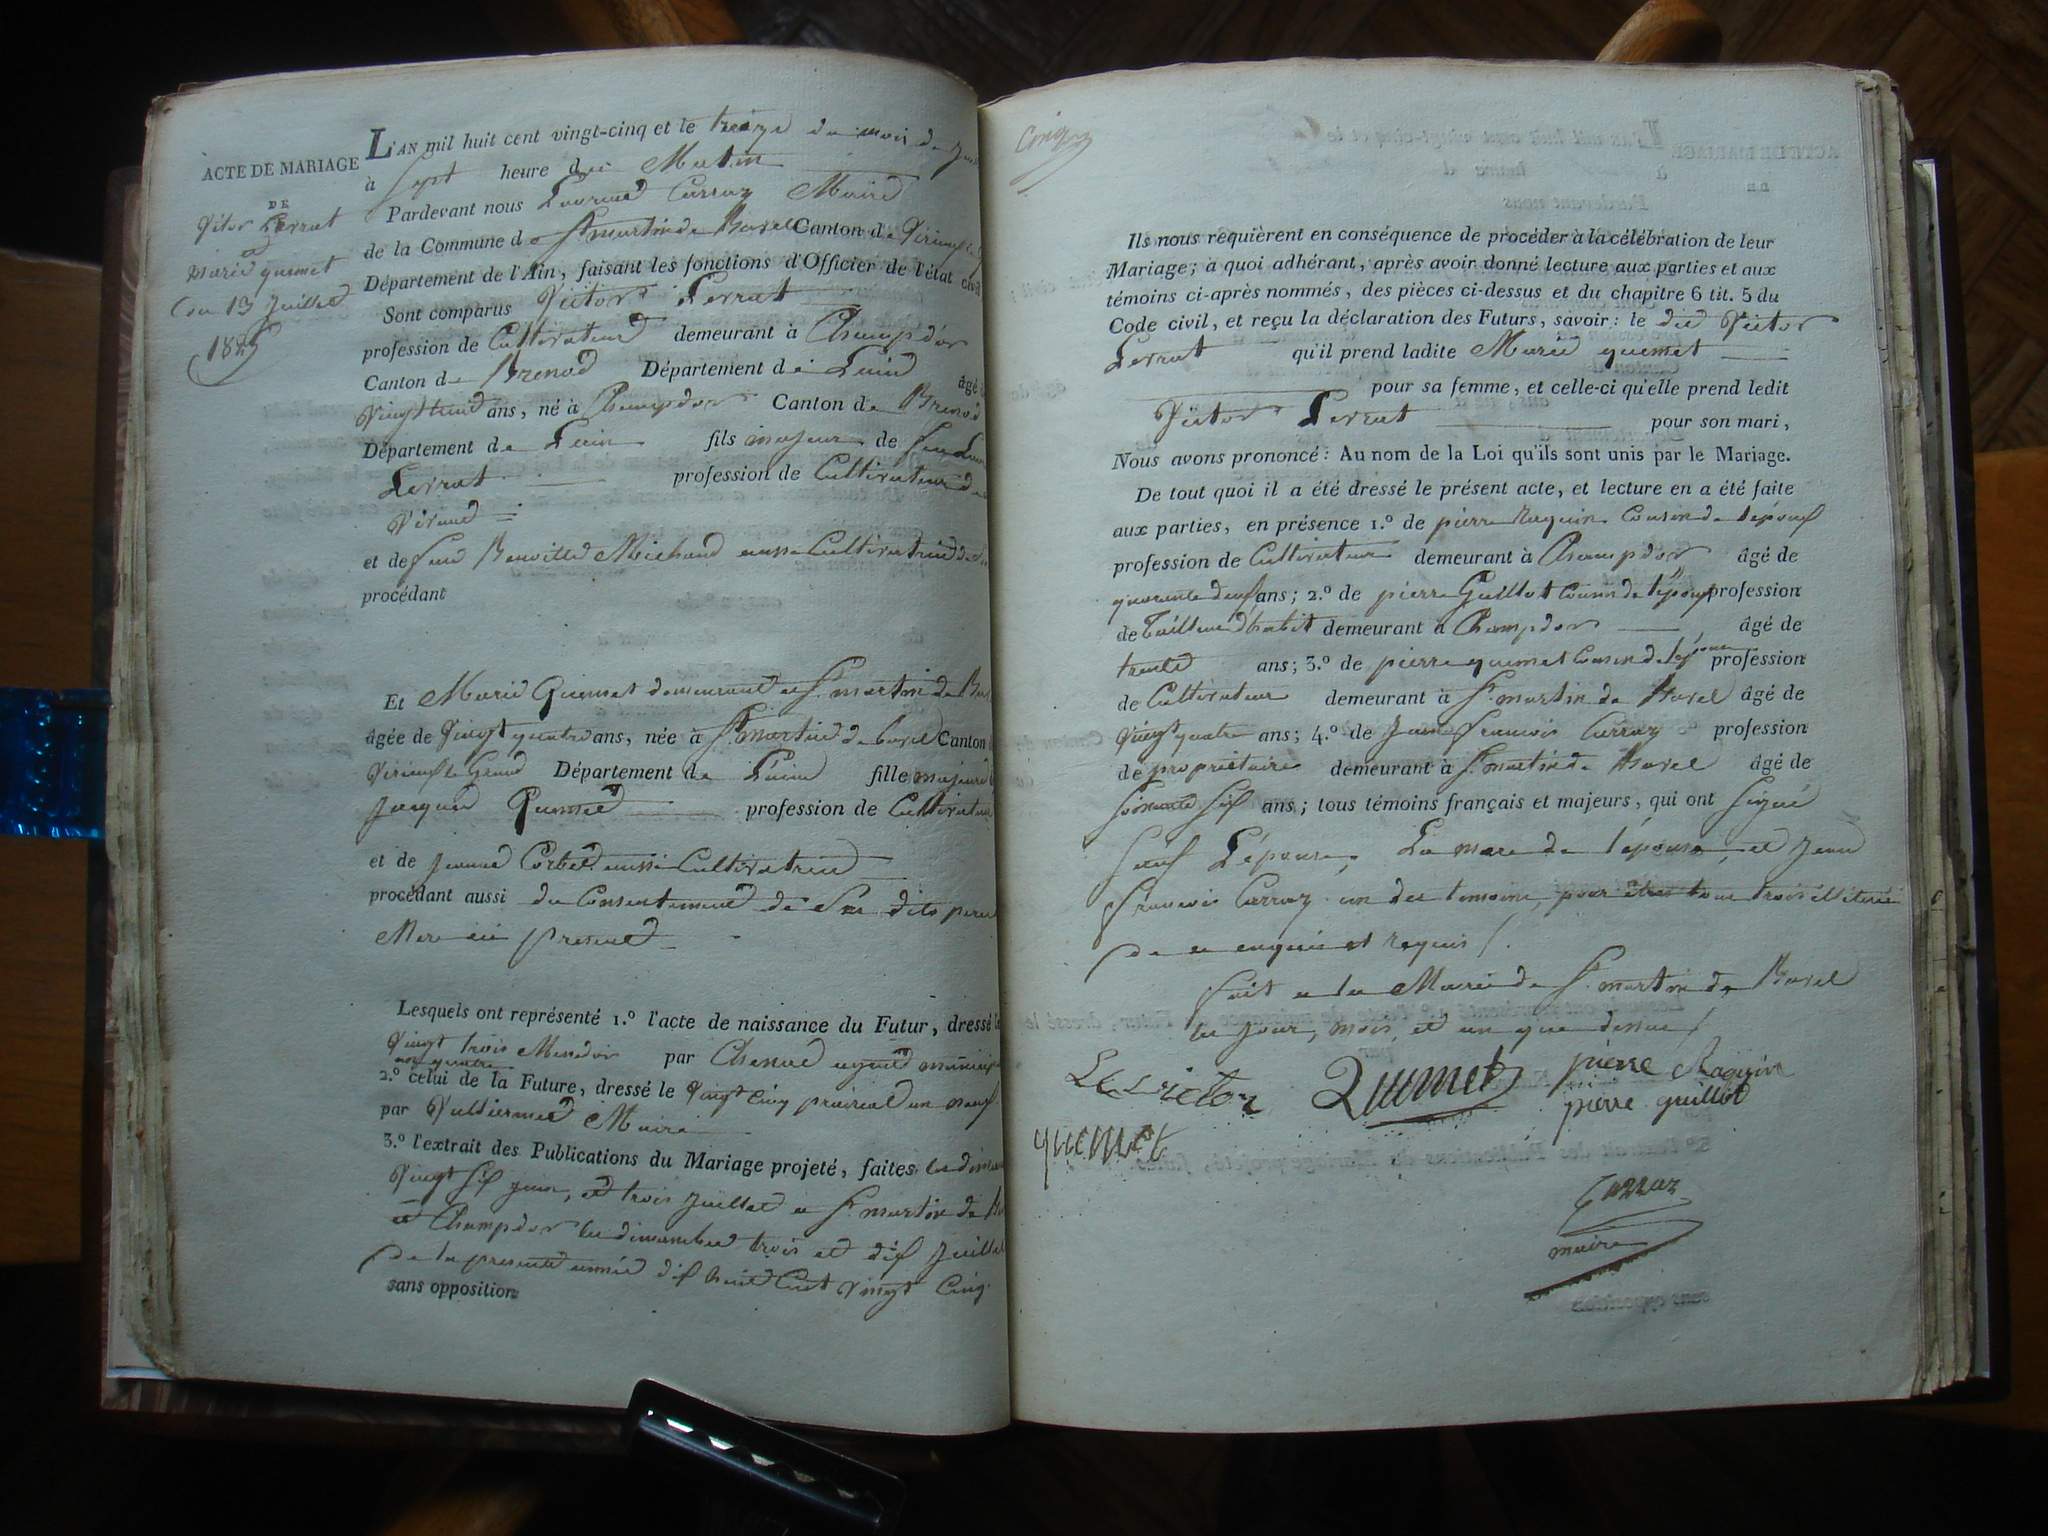 ACTE DE MARIAGE
DE
Victor Perrat
et
marie quemet
du 13 Juillet
1825
L'AN mil huit cent vingt-cinq et le treize du mois de
à Sept heure du Matin
Pardevant nous Laurent Carraz Maire
de la Commune de St martin de Bavel Canton de
Département de l'Ain, faisant les fonctions d'Officier de l'état civil
Sont comparus Victor Perrat
profession de Cultivateur demeurant à Champdor
Canton de Brenod Département de Lain âgé
ans, né à Champdor Canton de Brenod
Département de Lain fils majeur de feu
Perrat profession de Cultivateur
et de feue Michaud aussi Cultivatrice
procédant
Et Marie Quemet demeurant a St martin de
âgée de Vingt quatre ans, née à St martin de bavel Canton
Virieu le Grand Département de Lain fille majeure
Jacques Quemet profession de Cultivateur
et de Jeanne aussi Cultivatrice
procédant aussi du Consentement de Ses dits pere
Mere ici present
Lesquels ont représenté 1.º l'acte de naissance du Futur, dressé le
Vingt trois Messidor par agent
an quatre
2.º celui de la Future, dressé le Vingt Cinq prairial an neuf
par Maire
3.º l'extrait des Publications du Mariage projeté, faites les
Vingt Six juin, et trois Juillet a St martin de
et Champdor les dimanches trois et dix Juillet
de la presente année dix huit Cent Vingt Cinq
sans opposition
Ils nous requièrent en conséquence de procéder à la célébration de leur
Mariage; à quoi adhérant, après avoir donné lecture aux parties et aux
témoins ci-après nommés, des pièces ci-dessus et du chapitre 6 tit. 5 du
Code civil, et reçu la déclaration des Futurs, savoir: le dit Victor
Perrat qu'il prend ladite Marie quemet
pour sa femme, et celle-ci qu'elle prend ledit
Victor Perrat pour son mari,
Nous avons prononcé: Au nom de la Loi qu'ils sont unis par le Mariage.
De tout quoi il a été dressé le présent acte, et lecture en a été faite
aux parties, en présence 1.º de pierre Raquin Cousin de lepoux
profession de Cultivateur demeurant à Champdor âgé de
quarante deux ans; 2.º de pierre Guillot Cousin de lépoux profession
de Tailleur dhabit demeurant à Champdor âgé de
trente ans; 3.º de pierre quemet Cousin de lépouse profession
de Cultivateur demeurant à St martin de Bavel âgé de
Vingt quatre ans; 4.º de Jean francois Carraz profession
de propriétaire demeurant à St martin de Bavel âgé de
Soixante Six ans; tous témoins français et majeurs, qui ont Signé
Sauf L'épouse, La mere de l'épouse, et Jean
francois Carraz un des temoins, pour être tous trois illiterés
de ce enquis et requis /.
fait a la Mairie de St martin de Bavel
les Jour, mois, et an que dessus /
Quemet pierre Raquin
pierre guillot
quemet
Carraz
maire